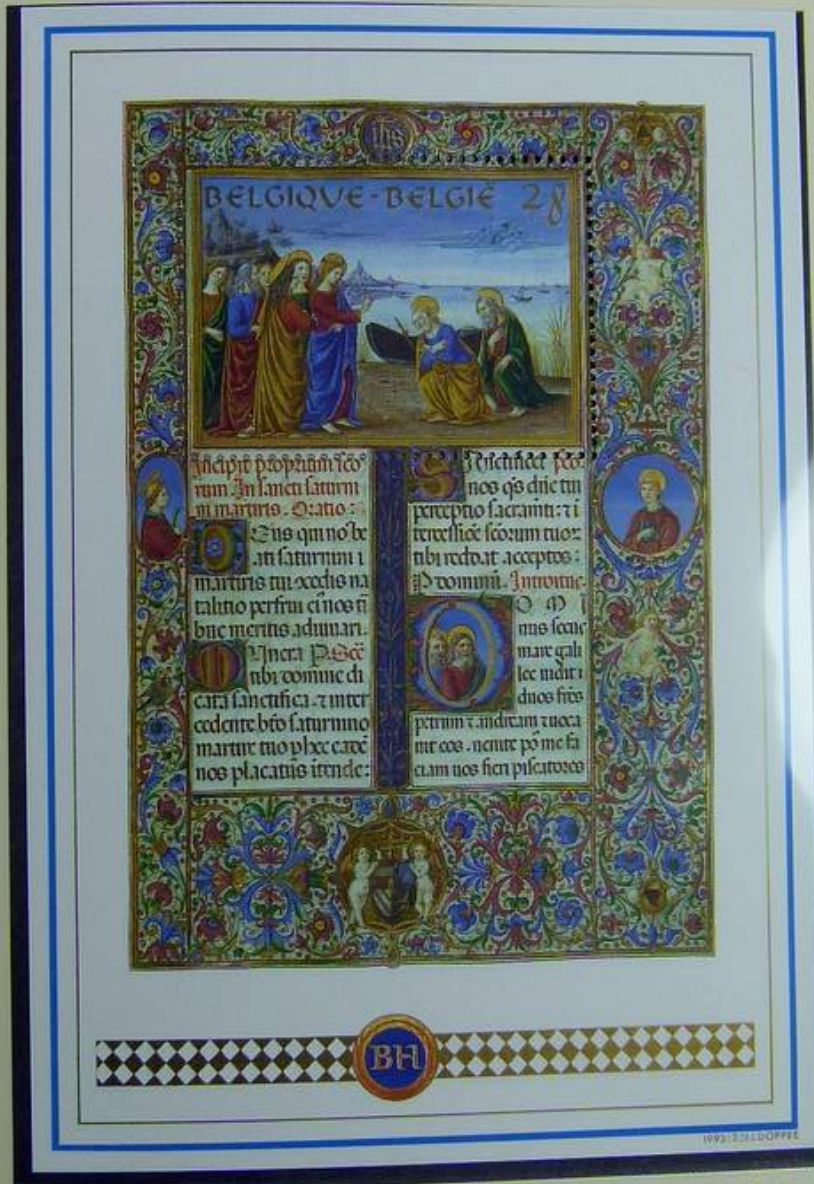 ihs
BELGIQVE-BELGIË 28
Incipit propriũm sco
rum. In sancti saturni
ni martiris. Oratio:
Eus qui nos be
ati saturnini
martiris tui
talitio perfrui
meritis adiuuari.
Munera
tibi domine di
cata sanctifica. et inter
cedente bto saturnino
martire tuo p hec eadẽ
nos placatus itende:
Sanctificet
nos qs dñe tui
perceptio sacramti: et i
tercessiõe scorum tuor
tibi reddat acceptos:
P dominũ. Introitus.
mare gali
lee uidit
duos frẽs
petrum et andream et uoca
uit eos. uenite põ me fa
ciam uos fieri piscatores
BH
1993
DOPPÉE